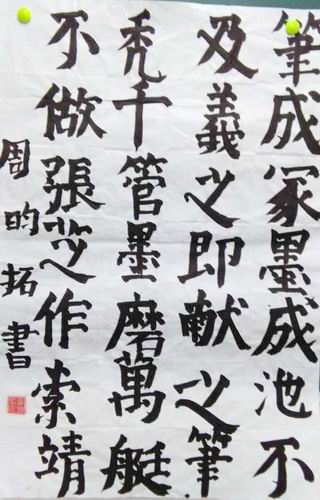 筆成冢墨成池不
及羲之即献之筆
禿千管墨磨萬艇
不做張芝作索靖
周昀拓書